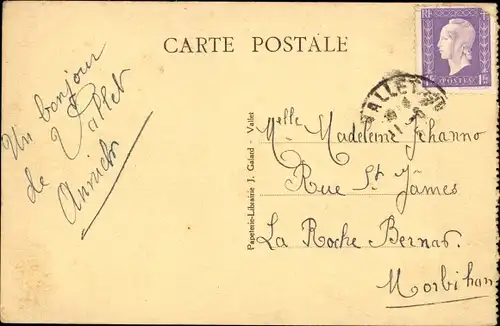 CARTE POSTALE
RF
POSTES
VALLET
Un bonjour
de Vallet
Papeterie-Librairie J. Galard - Vallet
Melle Madeleine Jehanno
Rue St James
La Roche Bernar.
Morbihan